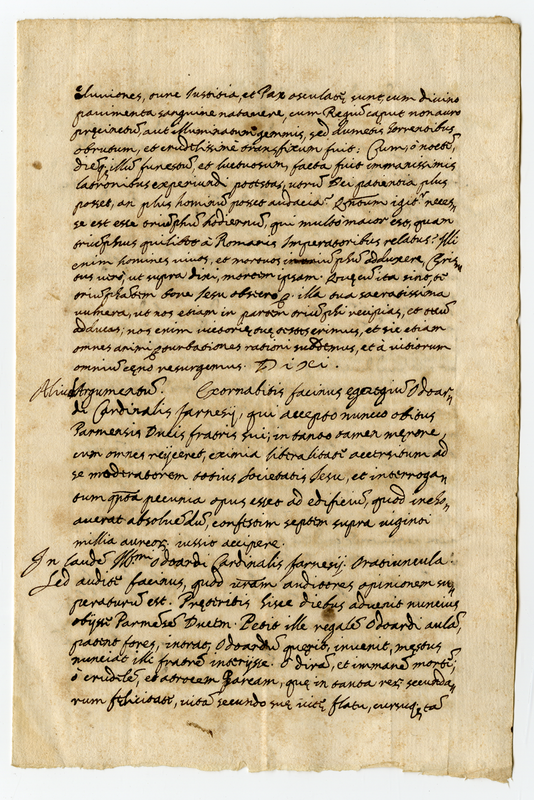 lluviones, tunc Iustitia, et Pax osculatę sunt, cum divino
pavimenta sanguine natavere, cum Regiũ caput non auro
pręcinctũ, aut illuminatum gemmis, sed dumetis horrentibus
obrutum, et crudelissime transfixum fuit: Cum, ô noctẽ,
diẽq; illũ funestũ, et luctuosum, facta fuit immanissimis
latronibus experiundi potestas, utrũ Dei patientia plus
posset, an plus hominũ posset audacia? Quantum igitr neces-
se est esse triũphũ hodiernũ, qui multò maior est, quam
triũphus quilibet à Romanis Imperatoribus relatus? Illi
enim homines vivos, et mortuos in triũphũ adduxere, Chris-
tus verò, ut supra dixi, mortem ipsam. Quę cũ ita sint, tẽ
triũphãtem bone Iesu obsecro, p. illa tua sacratissima
vulnera, ut nos etiam in partem triũphi recipias, et tecũ
adducas; nos enim victorię tuę testes erimus, et sic etiam
omnes animi pturbationes rationi subdemus, et à vitiorum
omniũ cęno resurgemus. Dixi.
Aliud Argumentũ. Exornabitis facinus egregiũ Odoar-
di Cardinalis Farnesij, qui accepto nuncio obitus
Parmensis Ducis fratris sui, in tanto tamen męrore,
cum omnes reijceret, eximia liberalitate accersitum ad
se moderatorem totius Societatis Iesu, et interroga-
tum quota pecunia opus esset ad edificiũ, quod incho-
averat absolvendũ, confestim septem supra viginti
millia aureor. iussit accipere.
In laudẽ Illmi Odoardi Cardinalis Farnesij. Oratiuncula.
Sed audite facinus, quod vram auditores opinionem su-
peraturũ est. Pręteritis hisce diebus advenit nuncius
obijsse Parmẽsẽ Ducẽm. Petit ille regalẽ Odoardi aulã,
patent fores, intrat, Odoardũ quęrit, invenit, męstus
nunciat illi fratrẽ interijsse. ô dirã, et immanẽ mortẽ,
ô crudelẽ, et atrocem Parcam, quę in tanta rer. secunda-
rum felicitate, vitã secundo suę vitę flatu, cursuq; tã